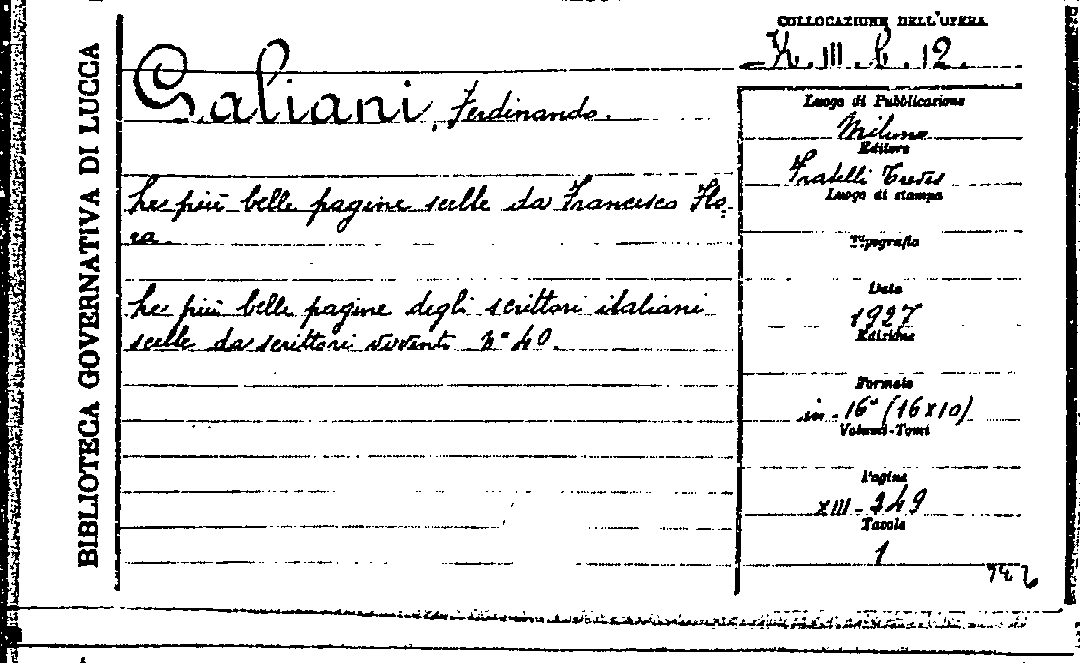 BIBLIOTECA GOVERNATIVA DI LUCCA
COLLOCAZIONE DELL'OPERA
K. III. b. 12.
Galiani, Ferdinando.
Le più belle pagine scelte da Francesco Flo-
ra.
Le più belle pagine degli scrittori italiani
scelte da scrittori viventi n° 40.
Luogo di Pubblicazione
Milano
Editore
Fratelli Treves
Luogo di stampa
Tipografia
Data
1927
Edizione
Formato
in-16° (16x10)
Volumi-Tomi
Pagine
XIII-249
Tavole
1